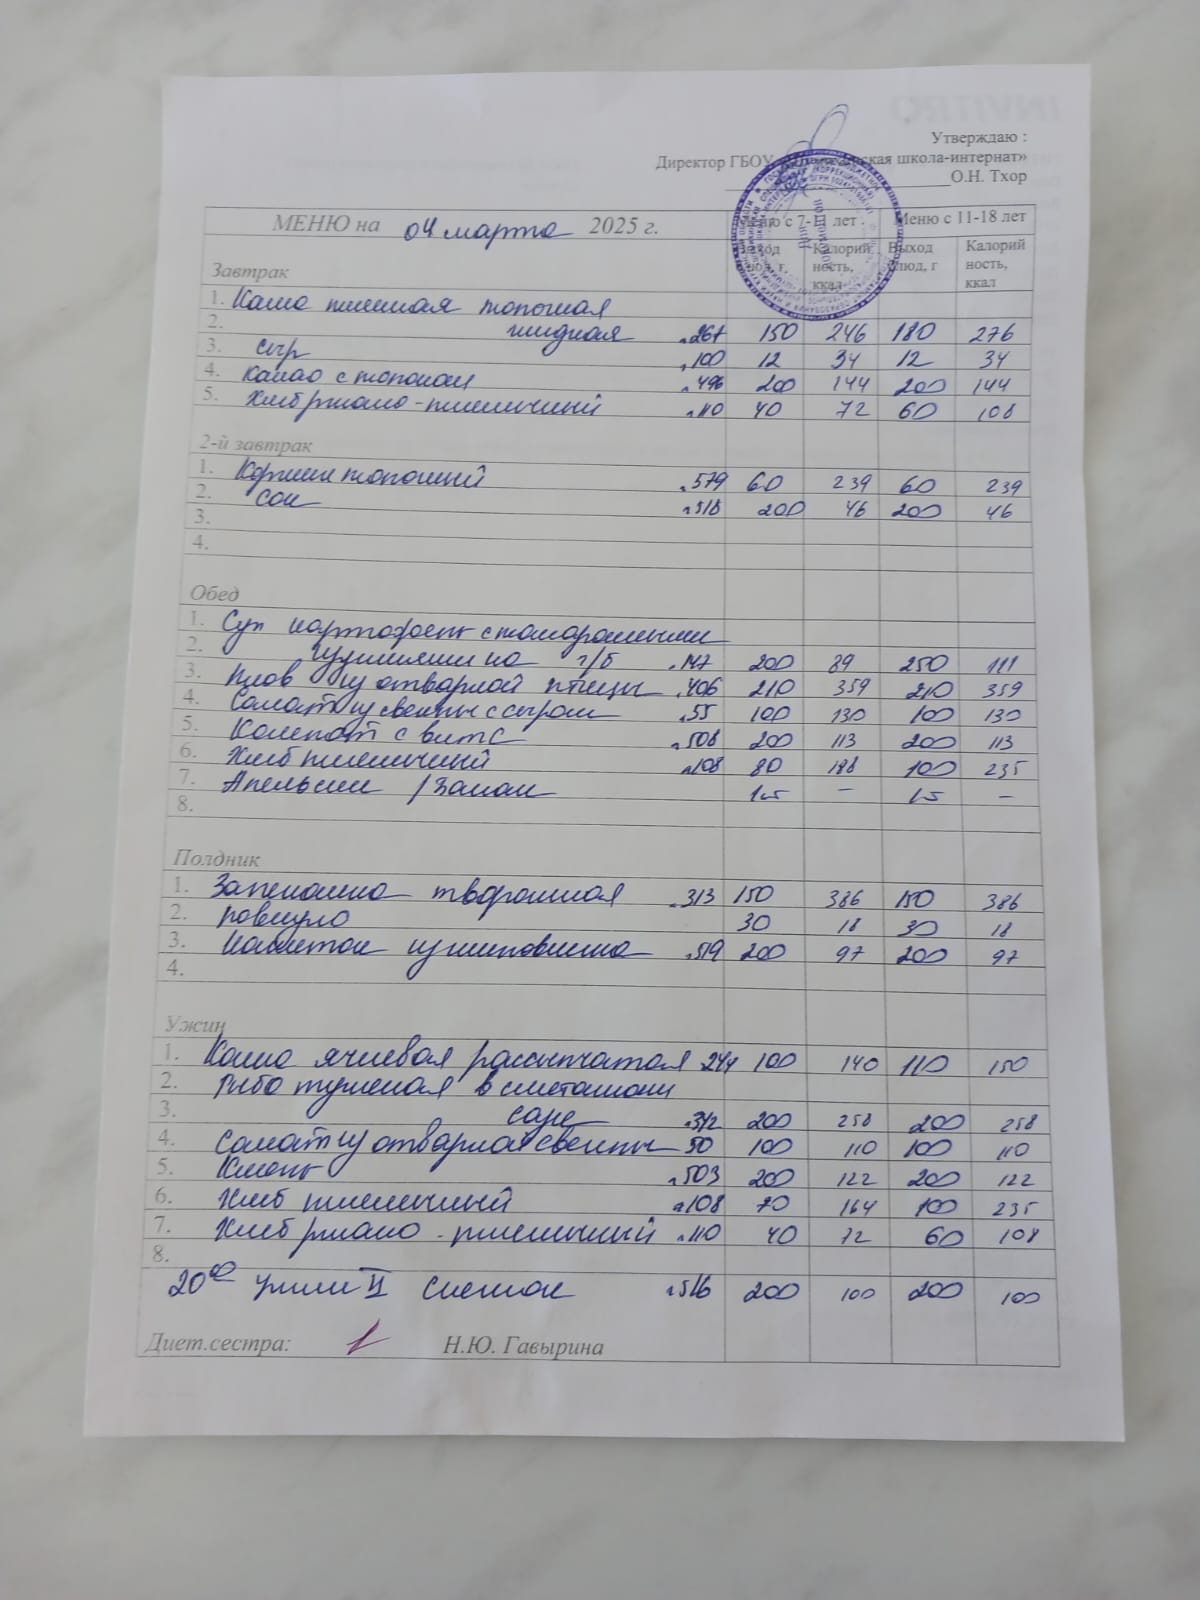 INVITRO
Утверждаю :
Директор ГБОУ ская школа-интернат»
О.Н. Тхор
МЕНЮ на 04 марта 2025 г. Меню с 7-11 лет . Меню с 11-18 лет
Завтрак Выход блюд, г. Калорий ность, ккал Выход блюд, г Калорий ность, ккал
1. Каша пшенная молочная
2. жидкая п.267 150 246 180 276
3. сыр п.100 12 34 12 34
4. какао с молоком п.496 200 144 200 144
5. Хлеб ржано-пшеничный п.110 40 72 60 108
2-й завтрак
1. Коржик молочный п.579 60 239 60 239
2. сок п.518 200 46 200 46
3.
4.
Обед
1. Суп картофельн с
2. на г/б п.147 200 89 250 111
3. Плов из отварной птицы п.406 210 359 210 359
4. Салат из свеклы с сыром п.55 100 130 100 130
5. Компот с вит С п.508 200 113 200 113
6. Хлеб пшеничный п.108 80 188 100 235
7. Апельсин / Банан 1/5 – 1/5 –
8.
Полдник
1. Запеканка творожная п.313 150 386 150 386
2. повидло 30 18 30 18
3. напиток из шиповника п.519 200 97 200 97
4.
Ужин
1. Каша ячневая рассыпчатая 244 100 140 110 150
2. Рыба тушеная в сметанном
3. соусе п.342 200 258 200 258
4. салат из отварной свеклы 50 100 110 100 110
5. Кисель п.503 200 122 200 122
6. Хлеб пшеничный п.108 70 164 100 235
7. Хлеб ржано-пшеничный п.110 40 72 60 108
8.
20⁰⁰ Ужин II Снежок п.516 200 100 200 100
Диет.сестра: Н.Ю. Гавырина